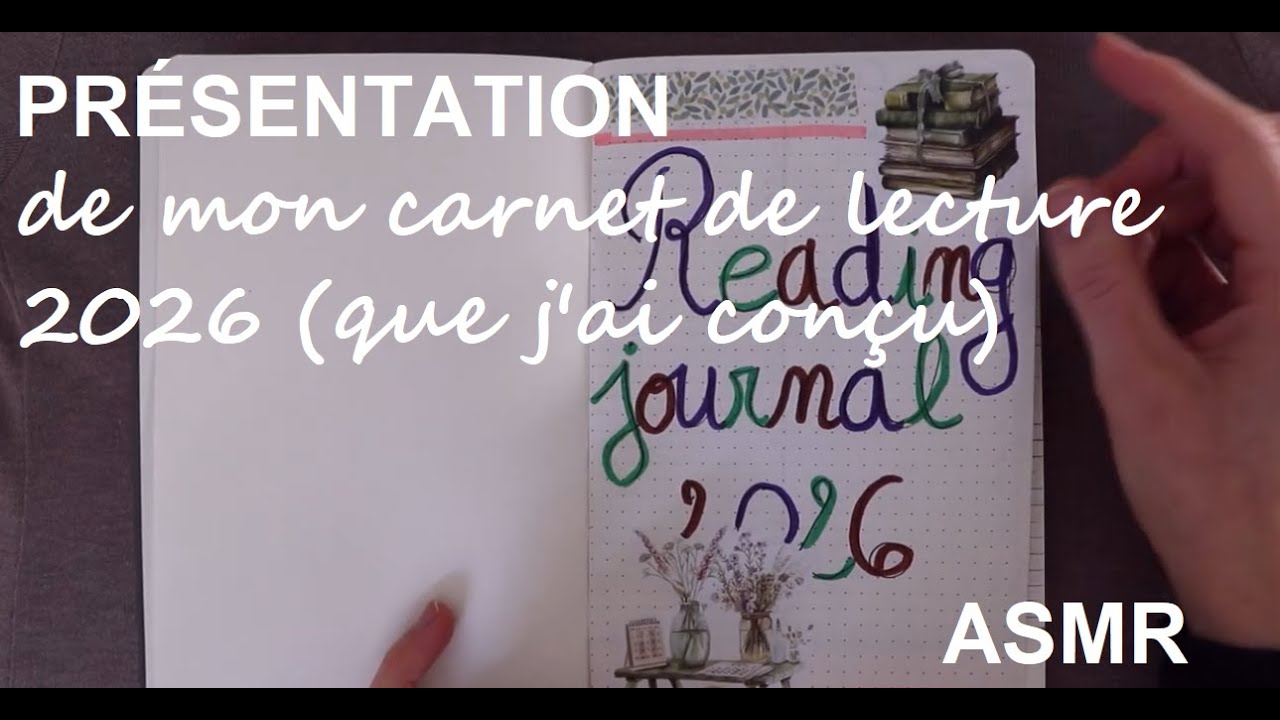 PRÉSENTATION
de mon carnet de lecture
2026 (que j'ai conçu)
Reading
journal
2026
ASMR